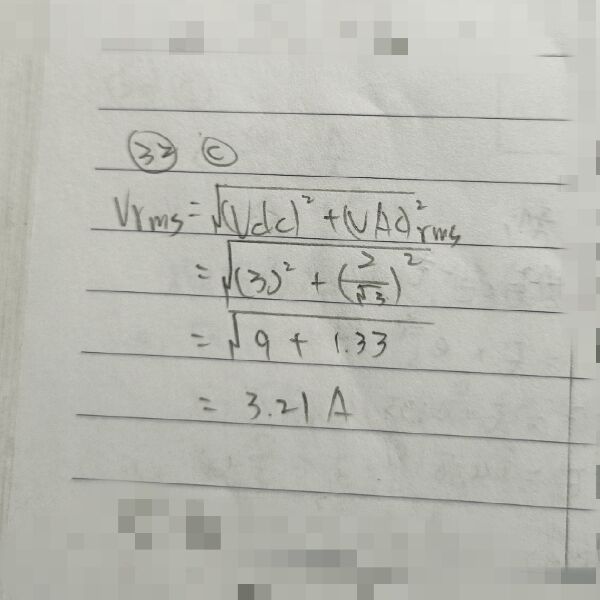 32 C
Vrms = √(Vdc)² + (VAC)²rms
= √(3)² + (2/√3)²
= √9 + 1.33
= 3.21 A